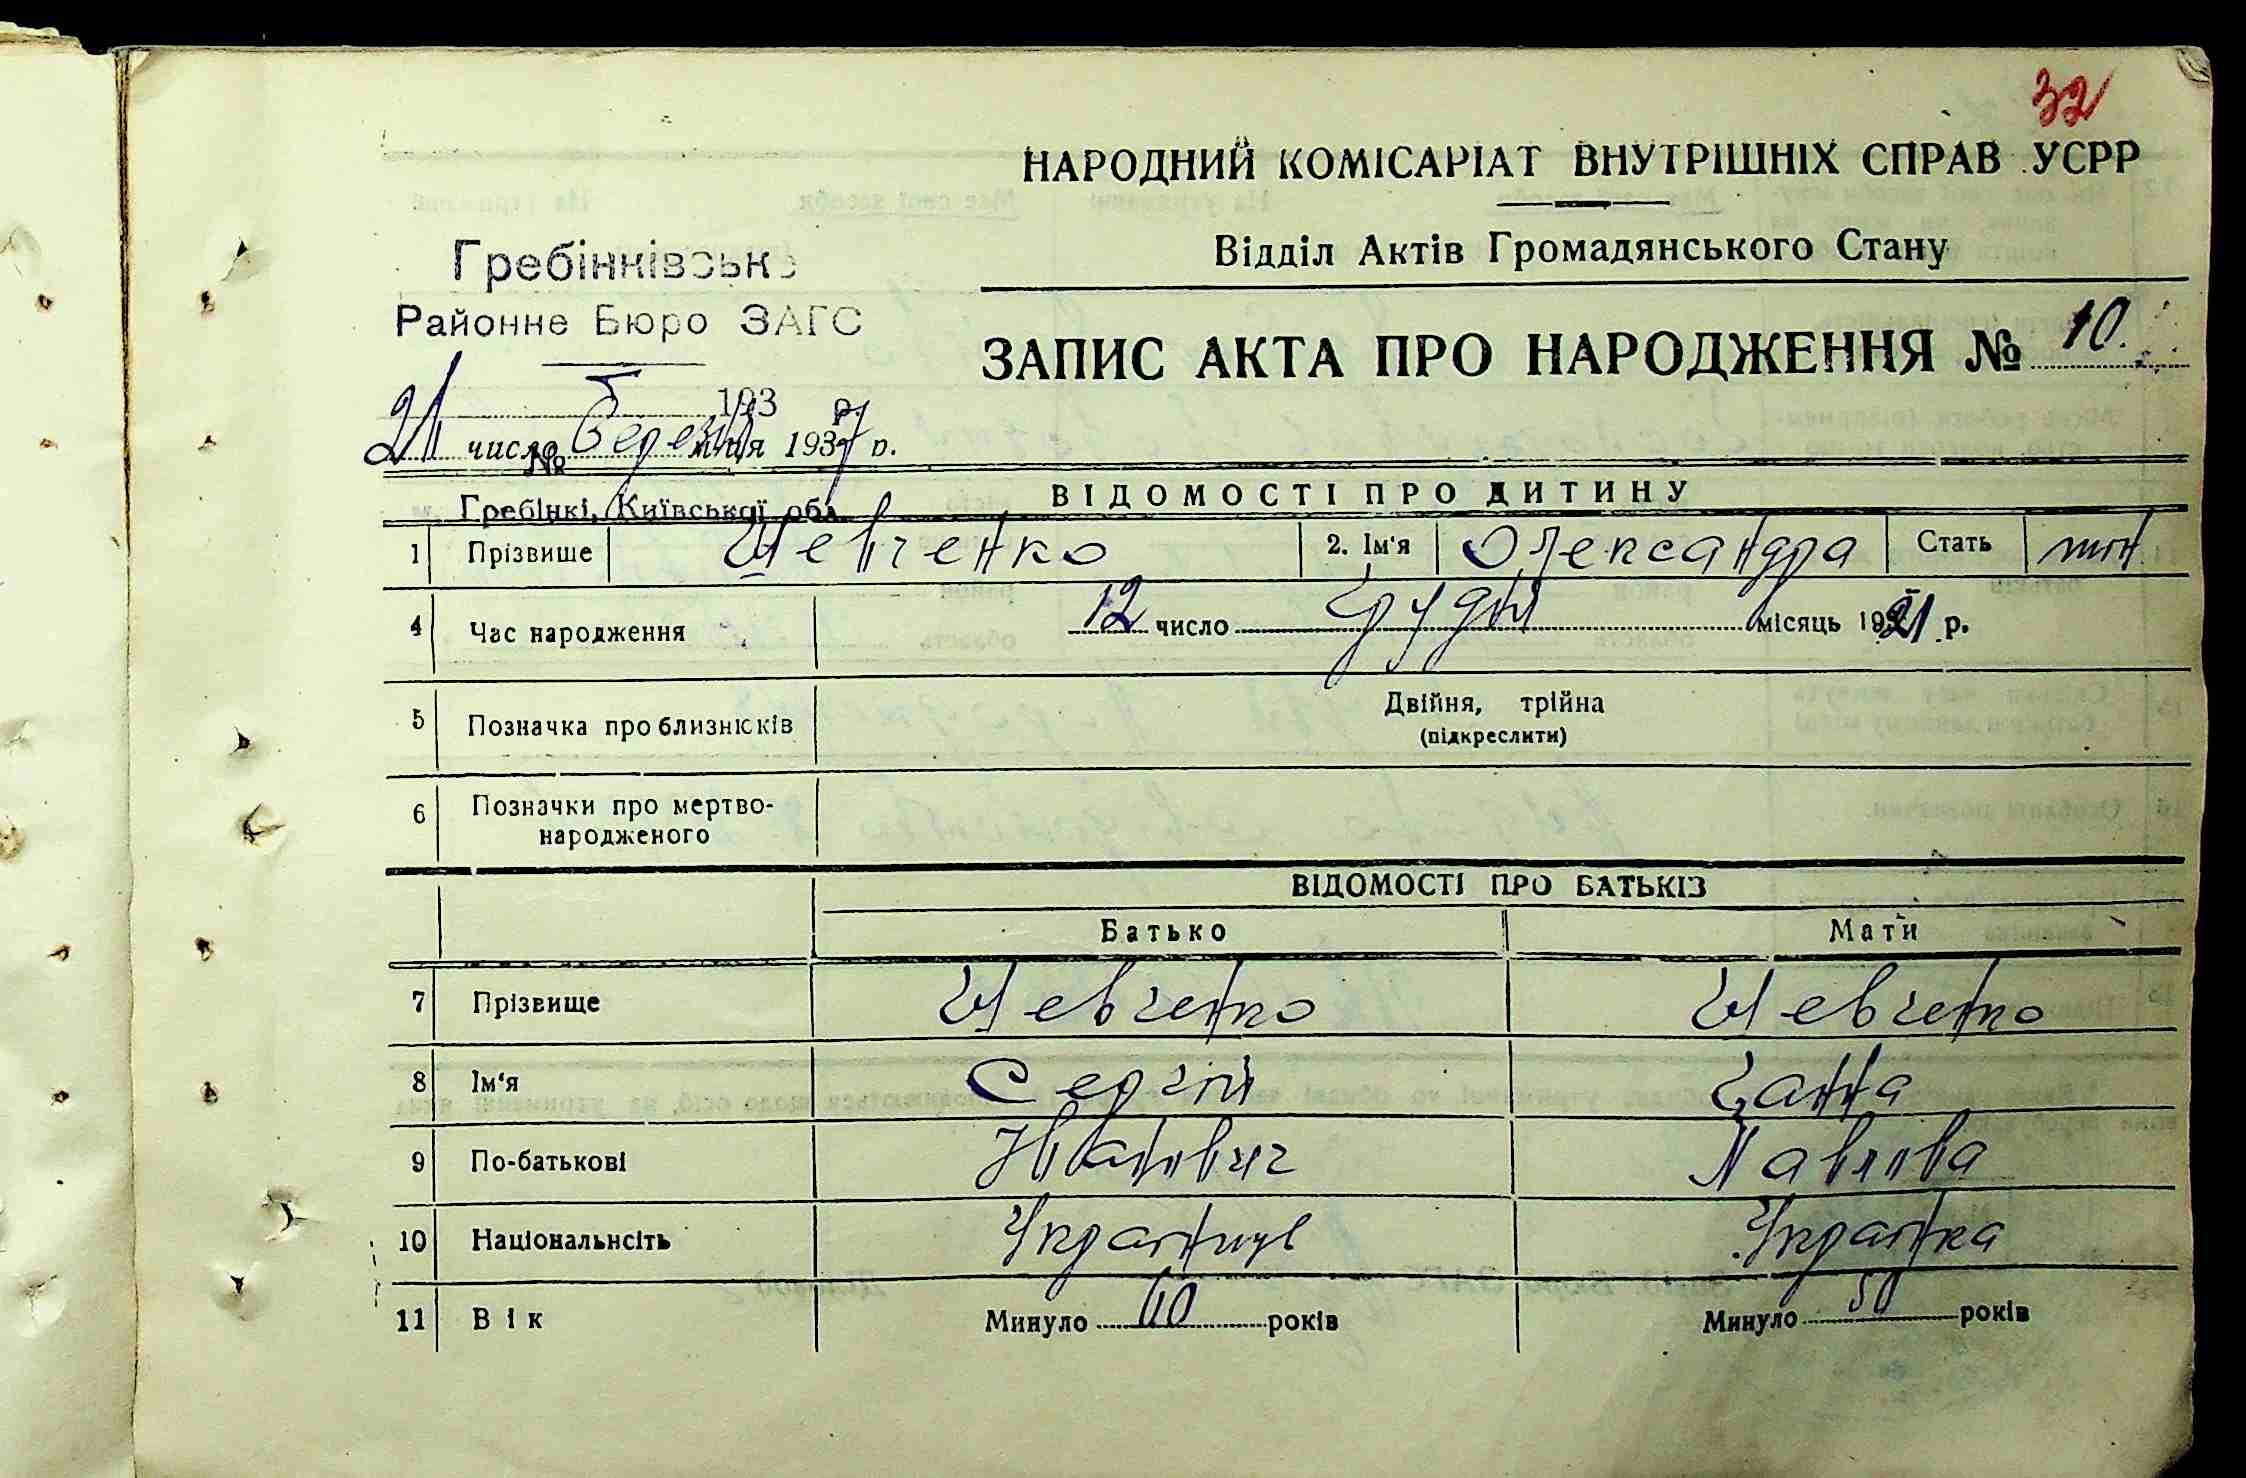 32
НАРОДНИЙ КОМІСАРІАТ ВНУТРІШНІХ СПРАВ УСРР
Відділ Актів Громадянського Стану
Гребінківське
Районне Бюро ЗАГС
193 р.
№
Гребінкі, Київської обл.
ЗАПИС АКТА ПРО НАРОДЖЕННЯ № 10.
21 число березня м-ця 1937 р.
ВІДОМОСТІ ПРО ДИТИНУ
1 Прізвище Шевченко 2. Ім'я Олександра Стать жін
4 Час народження 12 число Грудня місяць 1921 р.
5 Позначка про близнюків Двійня, трійна
(підкреслити)
6 Позначки про мертво-
народженого
ВІДОМОСТІ ПРО БАТЬКІВ
Батько Мати
7 Прізвище Шевченко Шевченко
8 Ім'я Сергій Ганна
9 По-батькові Іванович Павлівна
10 Національнсіть Українець Українка
11 Вік Минуло 60 років Минуло 50 років